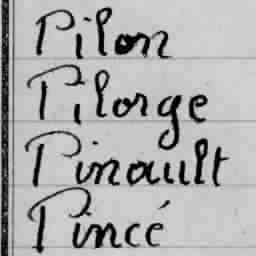 Pilon
Pilorge
Pinault
Pincé